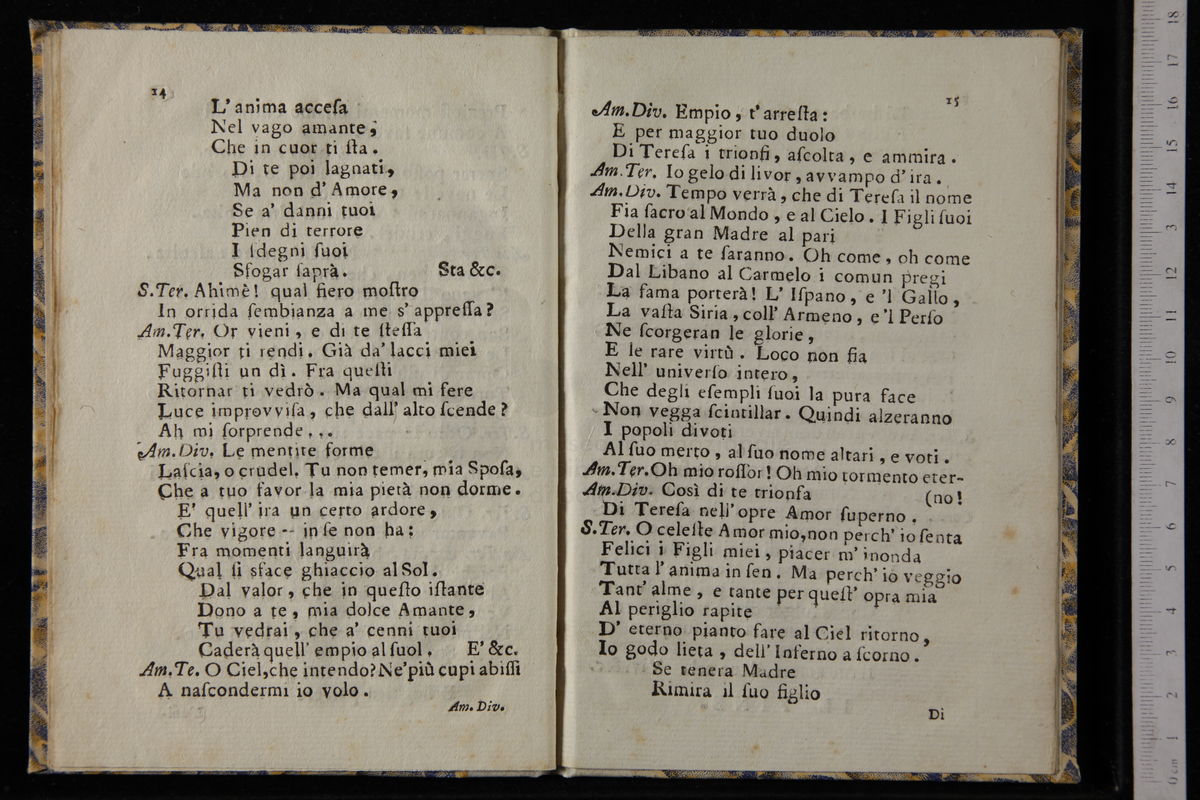 14
L'anima accesa
Nel vago amante;
Che in cuor ti sta.
Di te poi lagnati,
Ma non d'Amore,
Se a' danni tuoi
Pien di terrore
I sdegni suoi
Sfogar saprà. Sta &c.
S.Ter. Ahimè! qual fiero mostro
In orrida sembianza a me s'appressa?
Am.Ter. Or vieni, e di te stessa
Maggior ti rendi. Già da' lacci miei
Fuggisti un dì. Fra questi
Ritornar ti vedrò. Ma qual mi fere
Luce improvvisa, che dall'alto scende?
Ah mi sorprende...
Am.Div. Le mentite forme
Lascia, o crudel. Tu non temer, mia Sposa,
Che a tuo favor la mia pietà non dorme.
E' quell'ira un certo ardore,
Che vigore -- in se non ha:
Fra momenti languirà
Qual si sface ghiaccio al Sol.
Dal valor, che in questo istante
Dono a te, mia dolce Amante,
Tu vedrai, che a' cenni tuoi
Caderà quell'empio al suol. E' &c.
Am.Te. O Ciel, che intendo? Ne' più cupi abissi
A nascondermi io volo.
Am. Div.
15
Am.Div. Empio, t'arresta:
E per maggior tuo duolo
Di Teresa i trionfi, ascolta, e ammira.
Am.Ter. Io gelo di livor, avvampo d'ira.
Am.Div. Tempo verrà, che di Teresa il nome
Fia sacro al Mondo, e al Cielo. I Figli suoi
Della gran Madre al pari
Nemici a te saranno. Oh come, oh come
Dal Libano al Carmelo i comun pregi
La fama porterà! L'Ispano, e 'l Gallo,
La vasta Siria, coll'Armeno, e 'l Perso
Ne scorgeran le glorie,
E le rare virtù. Loco non fia
Nell'universo intero,
Che degli esempli suoi la pura face
Non vegga scintillar. Quindi alzeranno
I popoli divoti
Al suo merto, al suo nome altari, e voti.
Am.Ter. Oh mio rossor! Oh mio tormento eter-
Am.Div. Così di te trionfa (no!
Di Teresa nell'opre Amor superno.
S.Ter. O celeste Amor mio, non perch'io senta
Felici i Figli miei, piacer m'inonda
Tutta l'anima in sen. Ma perch'io veggio
Tant'alme, e tante per quest'opra mia
Al periglio rapite
D'eterno pianto fare al Ciel ritorno,
Io godo lieta, dell'Inferno a scorno.
Se tenera Madre
Rimira il suo figlio
Di